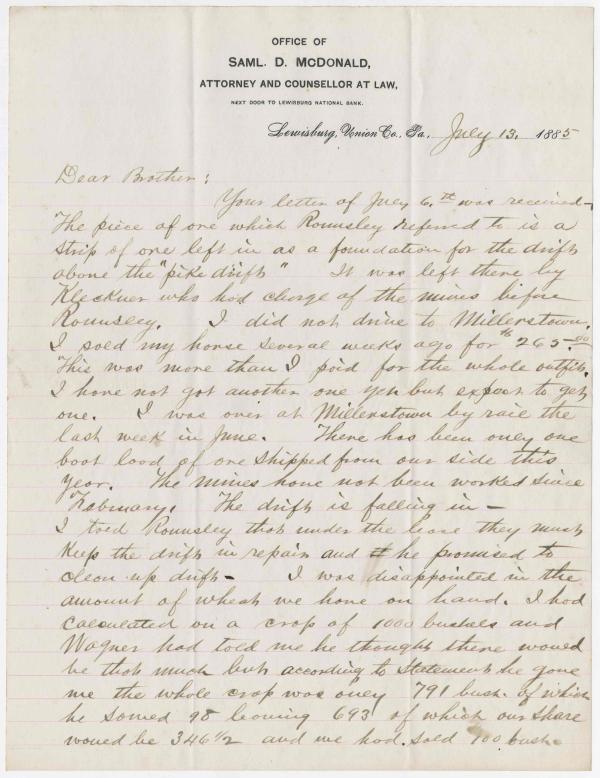 OFFICE OF
SAML. D. McDONALD,
ATTORNEY AND COUNSELLOR AT LAW,
NEXT DOOR TO LEWISBURG NATIONAL BANK.
Lewisburg, Union Co., Pa., July 13, 1885
Dear Brother:
Your letter of July 6.th was received—
The piece of ore which Roumsley referred to is a
strip of ore left in as a foundation for the drift
above the "pike drift" It was left there by
Kleckner who had charge of the mines before
Roumsley. I did not drive to Millerstown.
I sold my horse several weeks ago for $265.00
This was more than I paid for the whole outfit.
I have not got another one yet but expect to get
one. I was over at Millerstown by rail the
last week in June. There has been only one
boat load of ore shipped from our side this
year. The mines have not been worked since
February. The drift is falling in —
I told Roumsley that under the lease they must
keep the drift in repair and he promised to
clean up drift — I was disappointed in the
amount of wheat we have on hand. I had
calculated on a crop of 1000 bushels and
Wagner had told me he thought there would
be that much but according to statement he gave
me the whole crop was only 791 bush. of which
he sowed 98 leaving 693 of which our share
would be 346 1/2 and we had sold 100 bush.